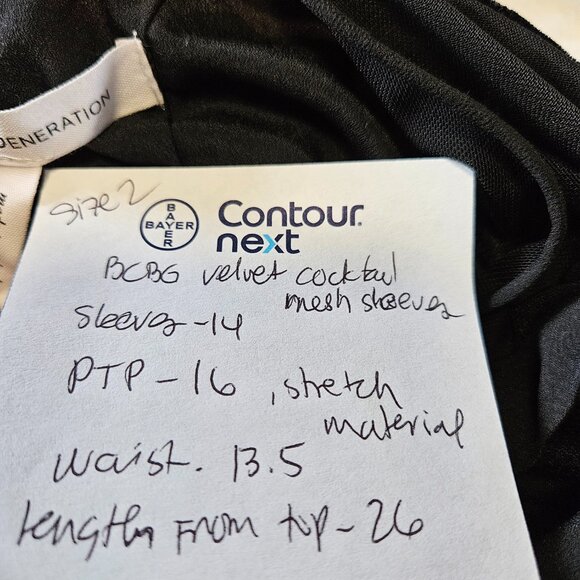 GENERATION
size 2
BAYER
BAYER
Contour
next
BCBG velvet cocktail
mesh sleeves
Sleeves - 14
PTP - 16 , stretch
material
waist. 13.5
Length from top - 26